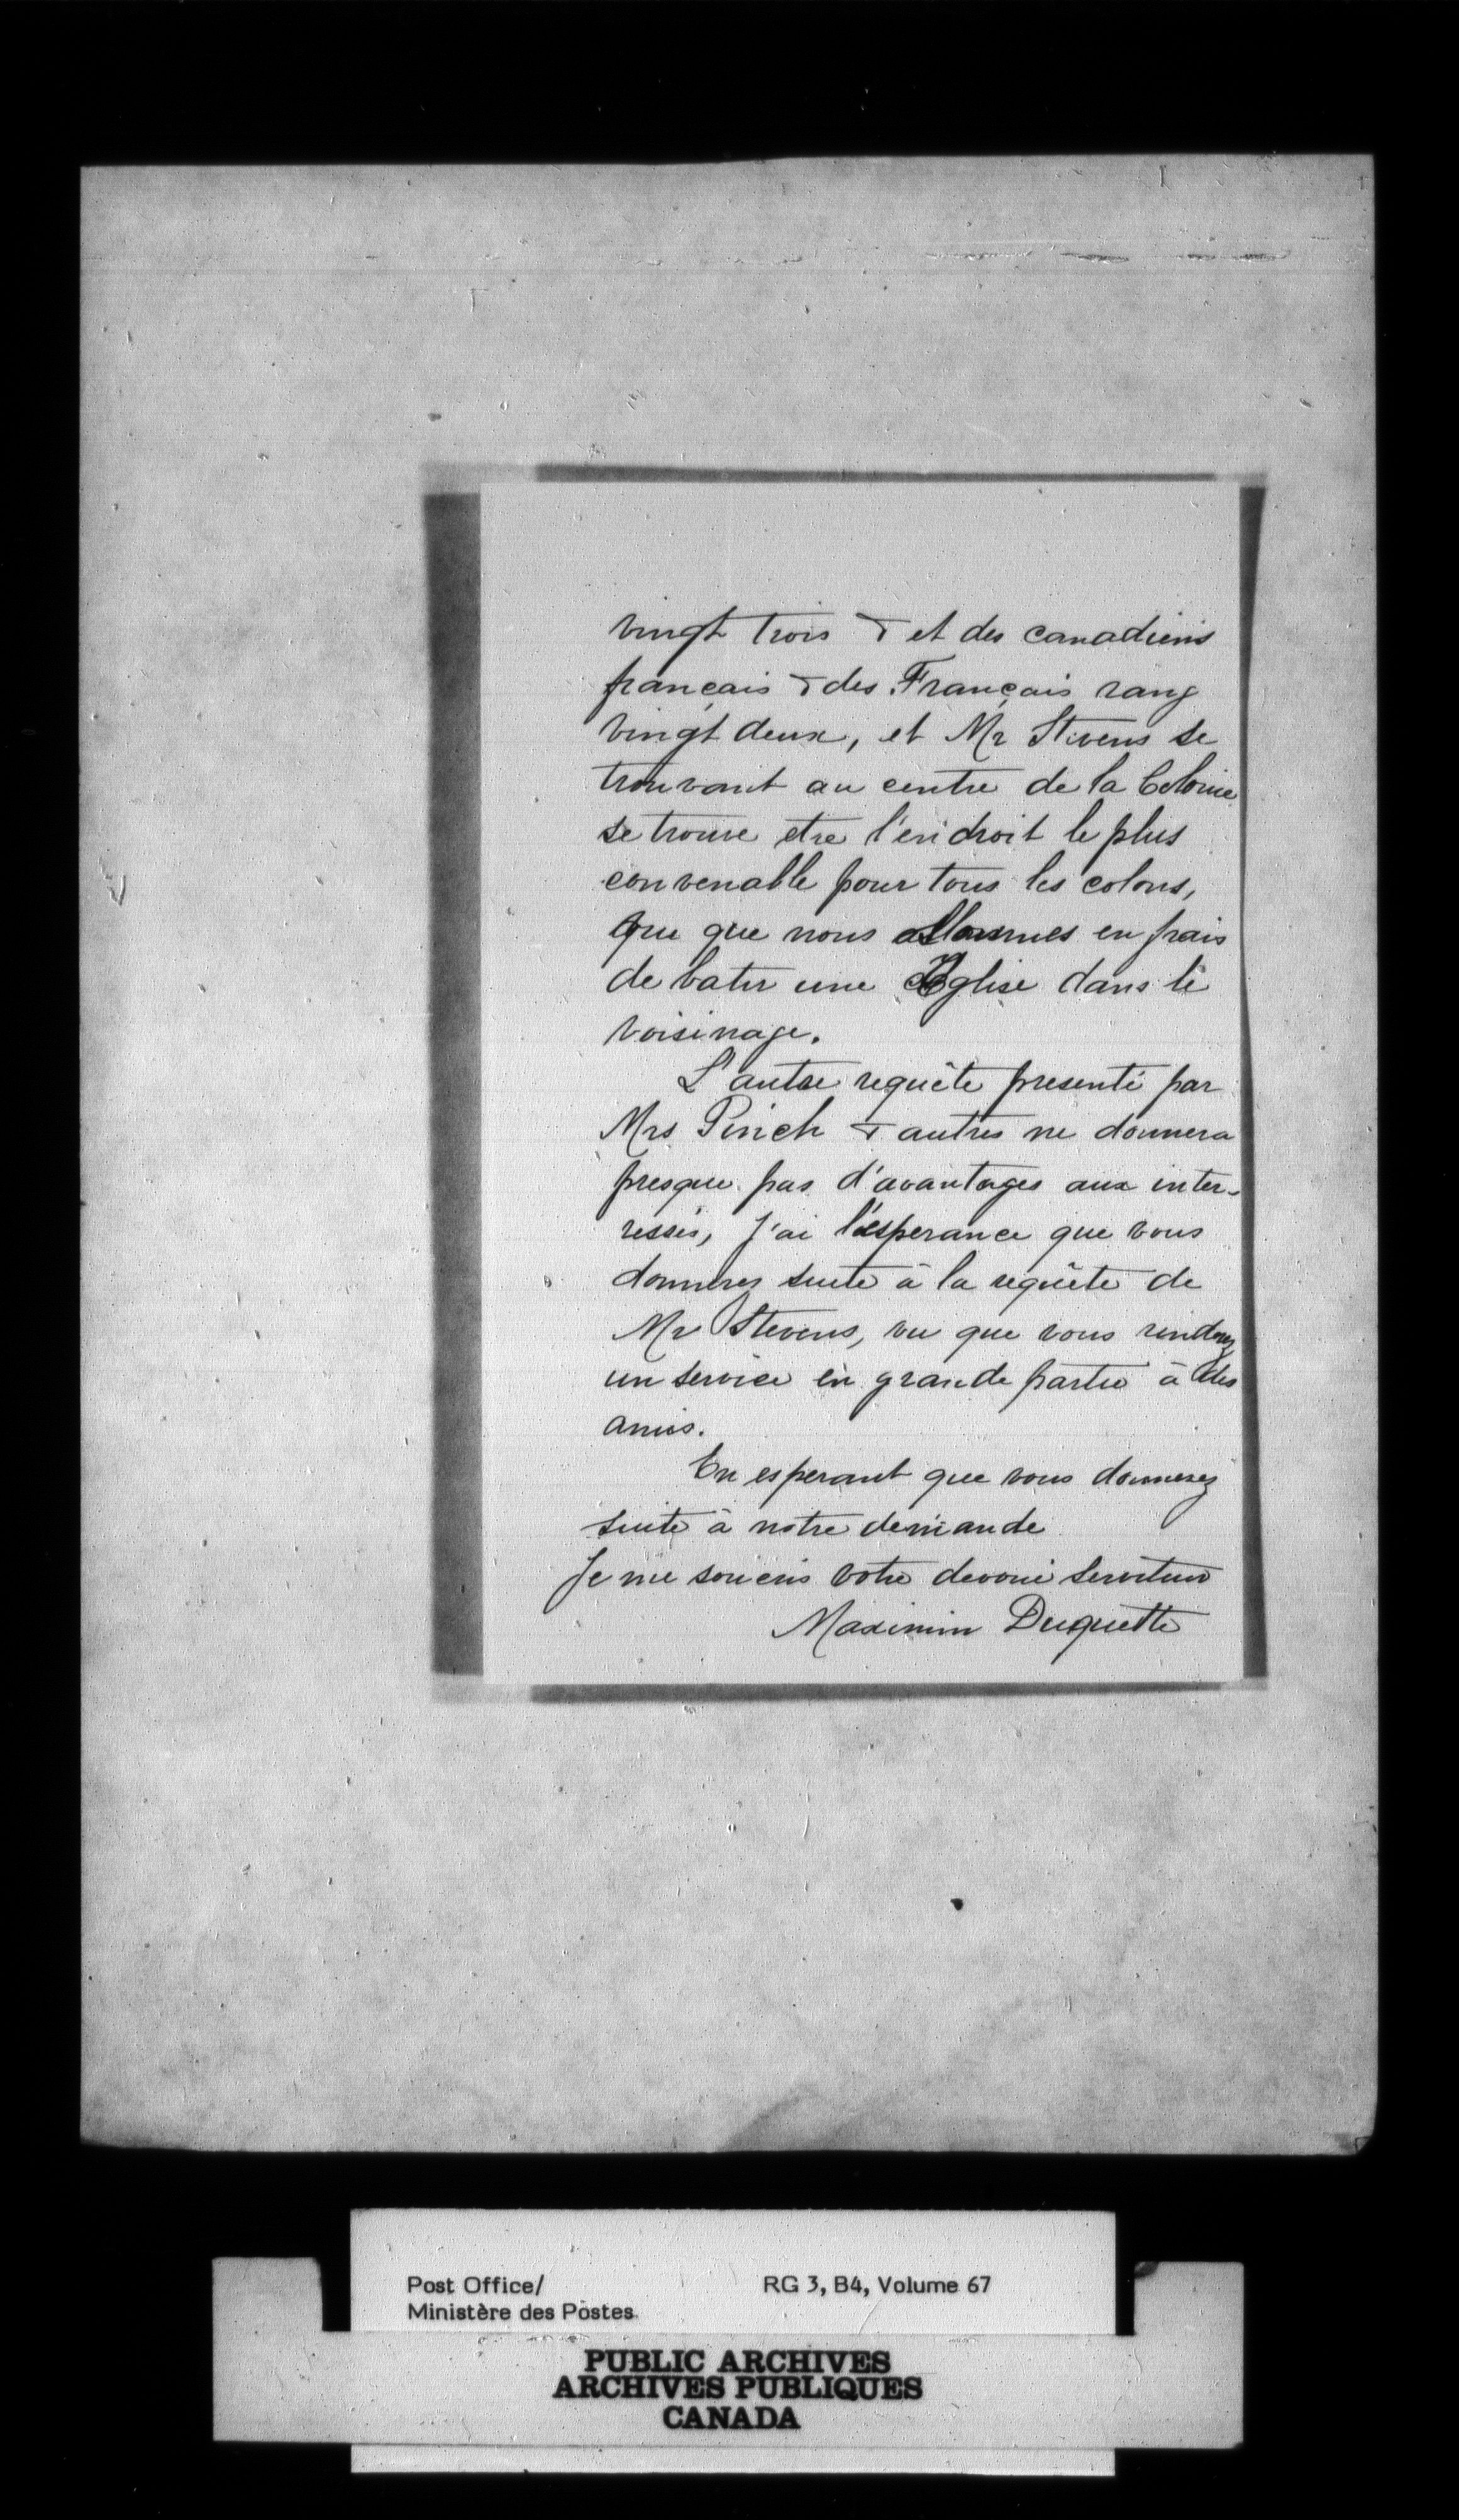 vingt trois & et des canadiens
français & des Français rang
vingt deux, et Mr Stevens se
trouvant au centre de la Colonie
se trouve etre l'endroit le plus
convenable pour tous les colons,
que nous sommes en frais
de batir une Eglise dans le
voisinage.
L'autre requête presenté par
Mrs Pinch & autres ne donnera
presque pas d'avantages aux inter-
ressés, J'ai l'esperance que vous
donnerez suite à la requête de
Mr Stevens, vu que vous rendrez
un service en grande partie à des
amis.
En esperant que vous donnerez
suite à notre demande
Je me souscris votre devoué serviteur
Maximin Duquette
Post Office/
Ministère des Postes
RG 3, B4, Volume 67
PUBLIC ARCHIVES
ARCHIVES PUBLIQUES
CANADA